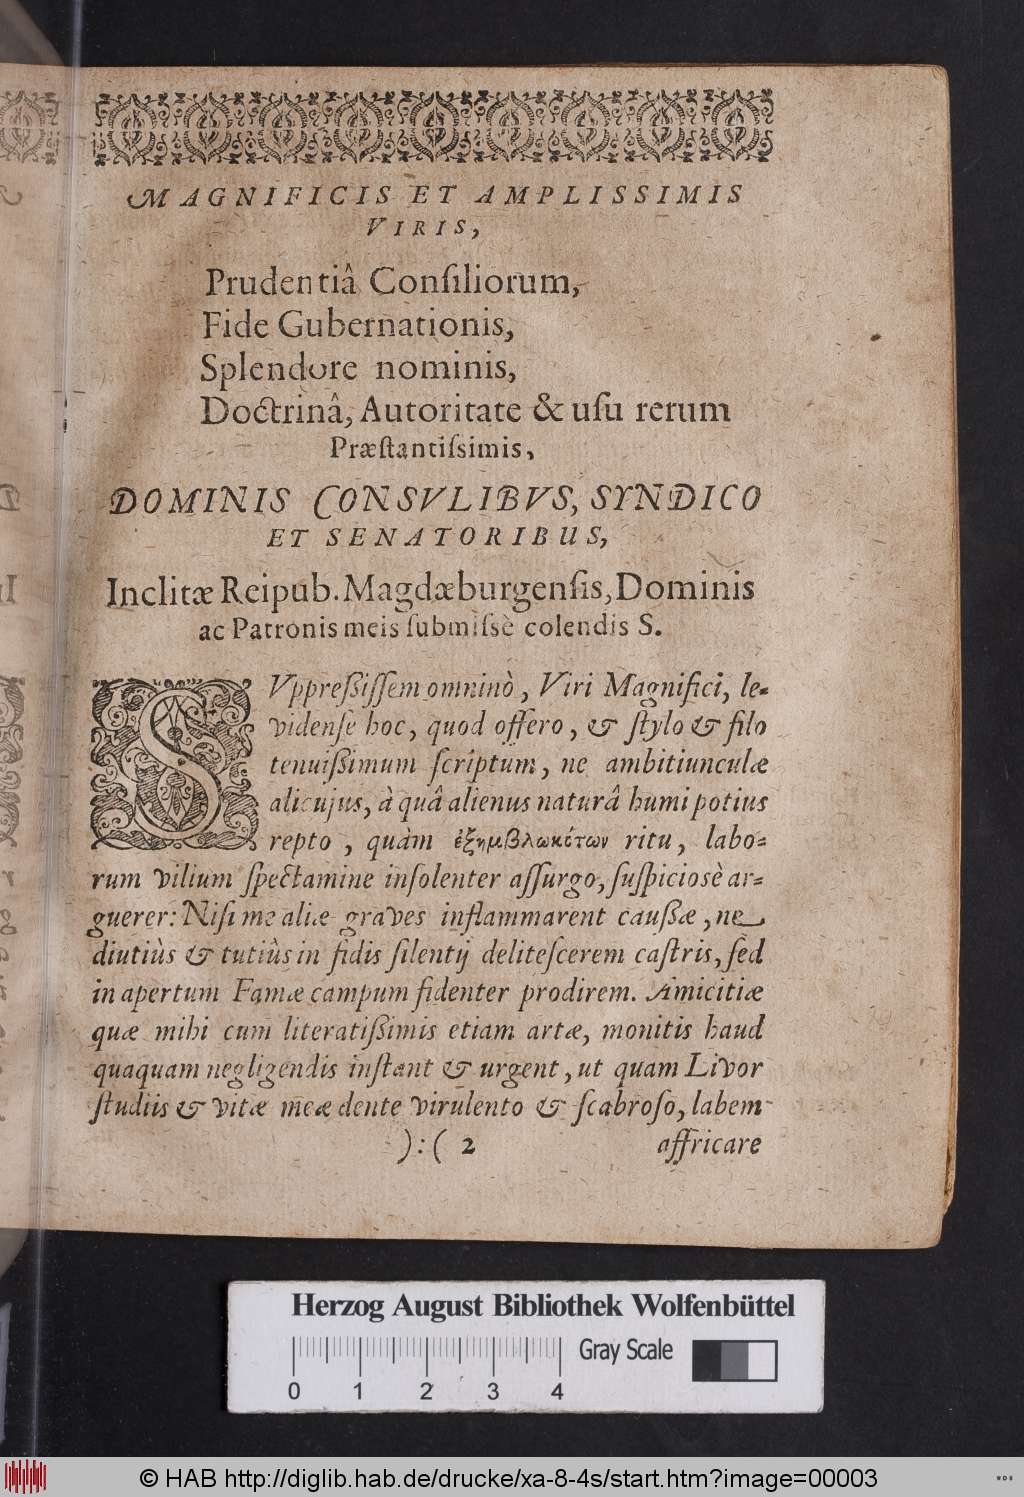 MAGNIFICIS ET AMPLISSIMIS
VIRIS,
Prudentiâ Conſiliorum,
Fide Gubernationis,
Splendore nominis,
Doctrinâ, Autoritate & uſu rerum
Præſtantiſsimis,
DOMINIS CONSVLIBVS, SYNDICO
ET SENATORIBUS,
Inclitæ Reipub. Magdæburgenſis, Dominis
ac Patronis meis ſubmiſsè colendis S.
SVppreßiſſem omninò, Viri Magnifici, le-
videnſè hoc, quod offero, & ſtylo & filo
tenuißimum ſcriptum, ne ambitiunculæ
alicujus, à quâ alienus naturâ humi potius
repto, quàm ἐξημβλωκότων ritu, labo-
rum vilium ſpectamine inſolenter aſſurgo, ſuſpicioſè ar-
guerer: Niſi me aliæ graves inflammarent caußæ, ne
diutiùs & tutiùs in fidis ſilentij deliteſcerem caſtris, ſed
in apertum Famæ campum fidenter prodirem. Amicitiæ
quæ mihi cum literatißimis etiam artæ, monitis haud
quaquam negligendis inſtant & urgent, ut quam Livor
ſtudiis & vitæ meæ dente virulento & ſcabroſo, labem
):( 2 affricare
Herzog August Bibliothek Wolfenbüttel
Gray Scale
0 1 2 3 4
© HAB http://diglib.hab.de/drucke/xa-8-4s/start.htm?image=00003
WDB